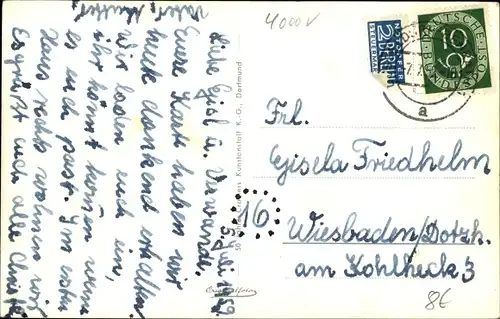 4000V
NOTOPFER
2 BERLIN
STEUERMARKE
DEUTSCHE
10
BUNDESPOST
a
Frl.
Gisela Friedhelm
16
Wiesbaden/Dotzh.
am Kohlheck 3
8€
5. Juli 1952
Liebe Gisel u. Verwandt.
Eure Karte haben wir
heute dankend erhalten.
Wir laden euch ein,
ihr könnt kommen wenn
es euch passt. Im ersten
Haus rechts wohnen wir
Es grüßt euch alle
Vater, Mutter,
Kunstanstalt K.-G., Dortmund